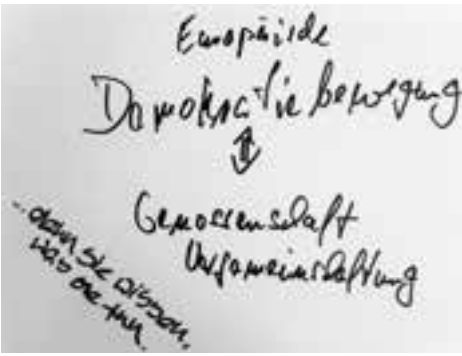 Europäische
Demokratiebewegung
Genossenschaft
Vergemeinschaftung
...denn sie wissen,
was sie tun.